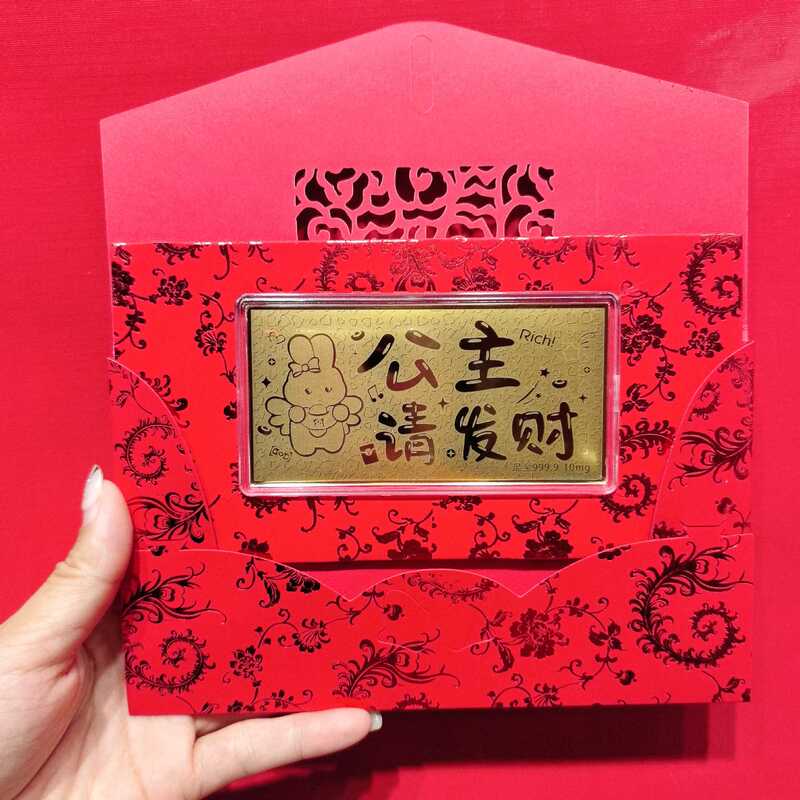 Rich!
公主
请发财
足金999.9 10mg